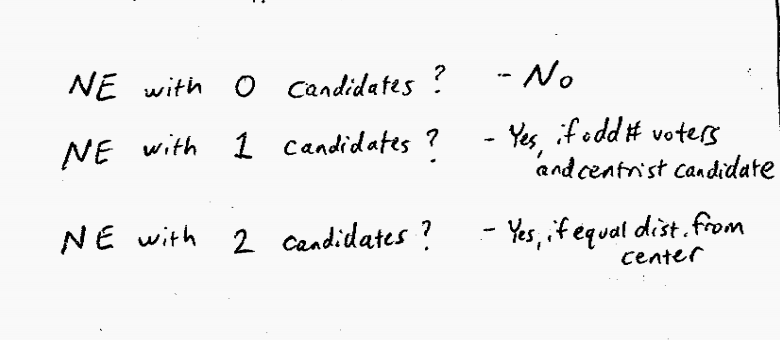 NE with 0 candidates? - No
NE with 1 candidates? - Yes, if odd # voters
and centrist candidate
NE with 2 candidates? - Yes, if equal dist. from
center